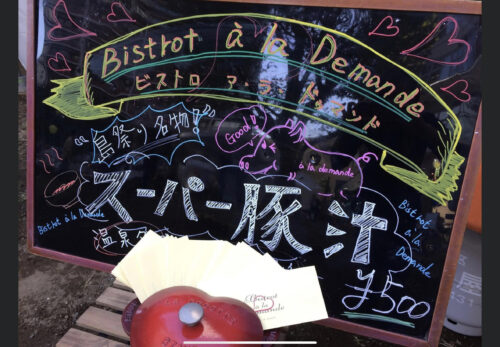 Bistrot à la Demande
ビストロ ア・ラ ドゥマンド
島祭り 名物!
Good!
à la demande
スーパー豚汁
Bistrot à la Demande
Bistrot
à la
Demande
温泉
¥500
Bistrot
à la
Demande